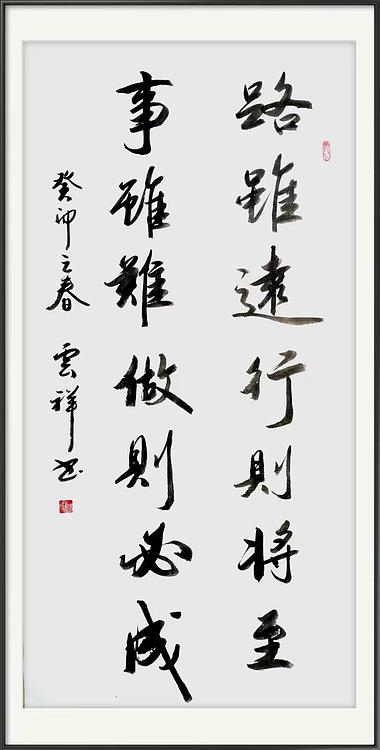 路雖遠行則将至
事雖難做則必成
癸卯之春 雲祥书